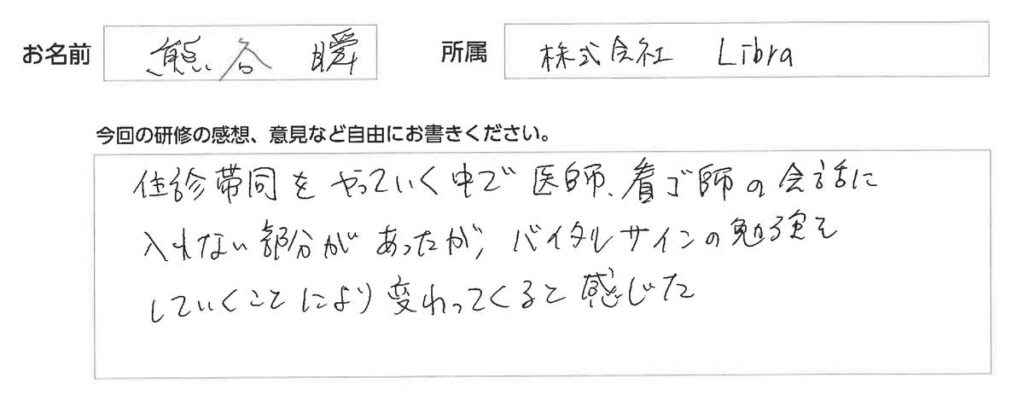 お名前 熊谷 瞬 所属 株式会社 Libra
今回の研修の感想、意見など自由にお書きください。
往診帯同をやっていく中で医師、看ゴ師の会話に
入れない部分があったが、バイタルサインの勉強を
していくことにより変わってくると感じた